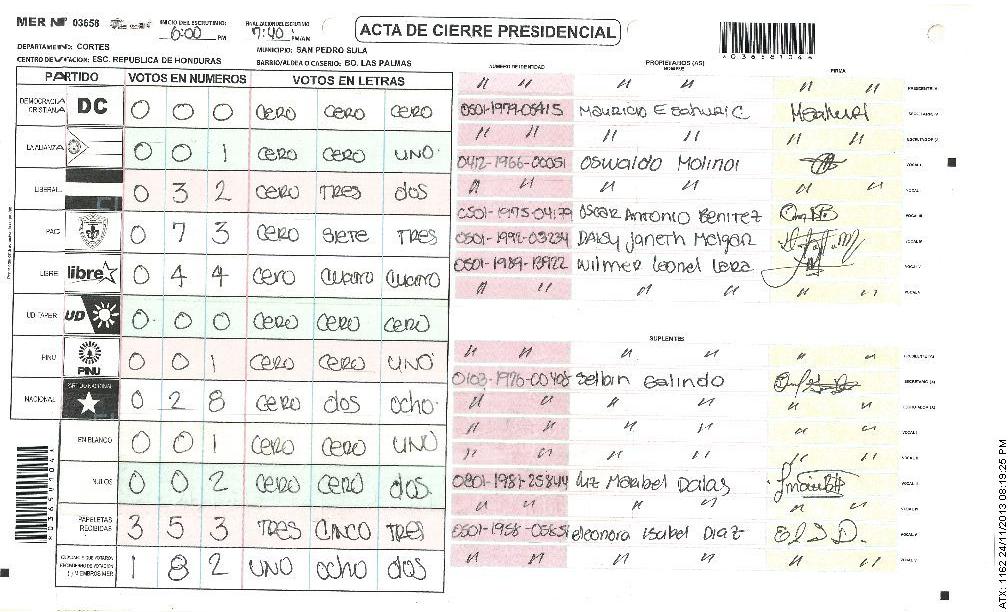 MER Nº 03658 INICIO DEL ESCRUTINIO: 6:00 PM FINALIZACION ESCRUTINIO 7:40 PM/AM
ACTA DE CIERRE PRESIDENCIAL
DEPARTAMENTO: CORTES MUNICIPIO: SAN PEDRO SULA
CENTRO DE VOTACION: ESC. REPUBLICA DE HONDURAS BARRIO/ALDEA O CASERIO: BO. LAS PALMAS
PARTIDO VOTOS EN NUMEROS VOTOS EN LETRAS
DEMOCRACIA CRISTIANA DC 0 0 0 CERO CERO CERO
LA ALIANZA 0 0 1 CERO CERO UNO
LIBERAL 0 3 2 CERO TRES dos
PAC 0 7 3 CERO SIETE TRES
LIBRE libre 0 4 4 Cero Cuatro Cuatro
UD FAPER UD 0 0 0 CERO CERO CERO
PINU PINU 0 0 1 CERO CERO UNO
NACIONAL 0 2 8 CERO dos ocho
EN BLANCO 0 0 1 CERO CERO UNO
NULOS 0 0 2 CERO CERO dos
PAPELETAS RECIBIDAS 3 5 3 TRES CINCO TRES
1 8 2 UNO ocho dos
NUMERO DE IDENTIDAD PROPIETARIOS (AS) NOMBRE FIRMA
" " " " " " PRESIDENTE
0501-1979-05415 Mauricio E SECRETARIO
" " " " " " ESCRUTADOR
0412-1966-00051 Oswaldo VOCAL I
" " " " " " VOCAL
0501-1975-04179 OSCAR ANTONIO BENITEZ VOCAL III
0501-1992-03234 DAISY Janeth Melgar VOCAL IV
0501-1989-13922 Wilmer Leonel Lara VOCAL V
" " " " " " VOCAL
SUPLENTES
" " " " " " PRESIDENTE
0103-1976-00408 Selbin Galindo SECRETARIO (A)
" " " " " " ESCRUTADOR (A)
" " " " " " VOCAL I
" " " " " " VOCAL II
0801-1981-25844 Luz Maribel VOCAL
" " " " " " VOCAL IV
0501-1958-05851 eleonora isabel Diaz VOCAL V
" " " " " " VOCAL
ATX: 1162 24/11/2013 08:13:25 PM